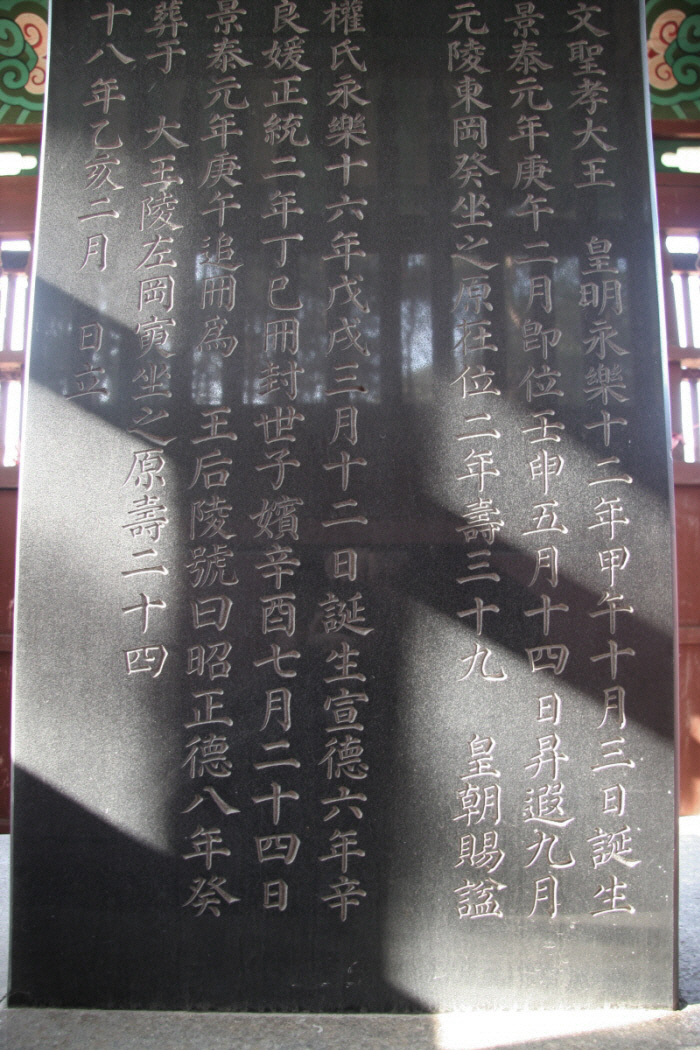 文聖孝大王 皇明永樂十二年甲午十月三日誕生
景泰元年庚午二月卽位壬申五月十四日昇遐九月
元陵東岡癸坐之原在位二年壽三十九 皇朝賜諡
權氏永樂十六年戊戌三月十二日誕生宣德六年辛
良媛正統二年丁巳冊封世子嬪辛酉七月二十四日
景泰元年庚午追冊爲 王后陵號曰昭正德八年癸
葬于 大王陵左岡寅坐之原壽二十四
十八年乙亥二月 日立